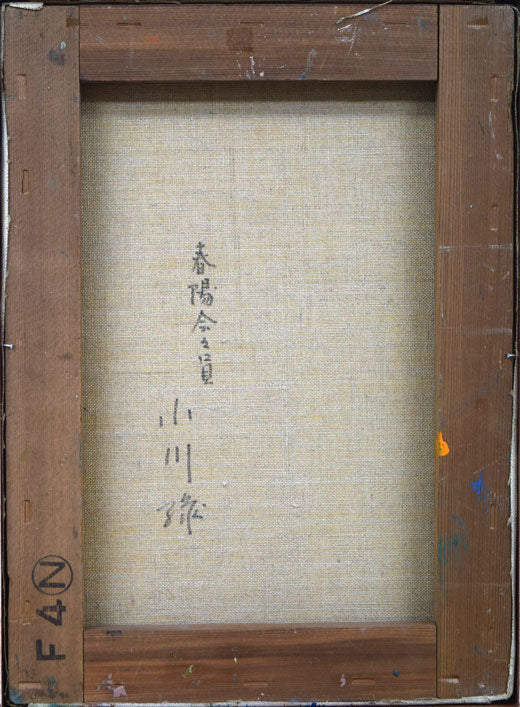 春陽会々員
小川
F4Ⓝ